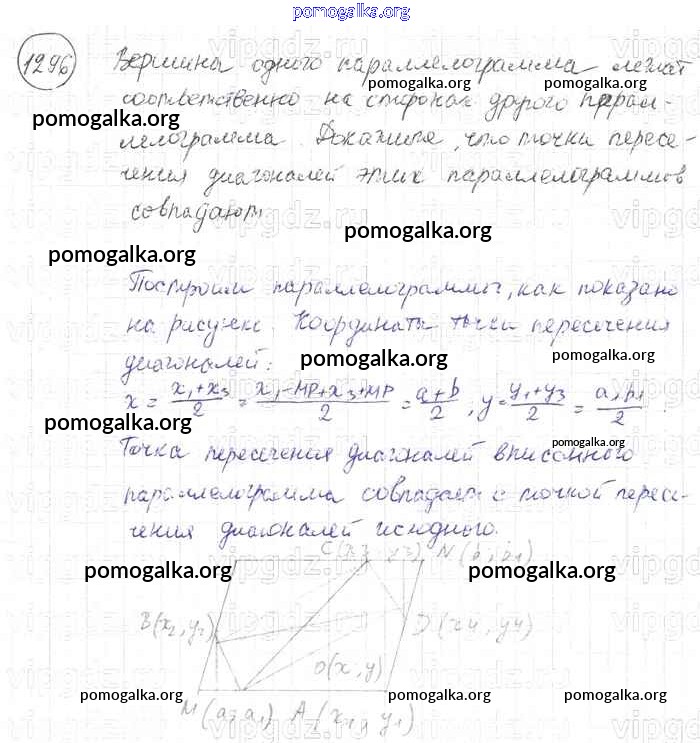 pomogalka.org
1296 Вершины одного параллелограмма лежат
pomogalka.org pomogalka.org
соответственно на сторонах другого парал-
pomogalka.org
лелограмма. Докажите, что точки пересе-
чения диагоналей этих параллелограммов
совпадают.
pomogalka.org
pomogalka.org
Построим параллелограммы, как показано
на рисунке. Координаты точки пересечения
pomogalka.org
диагоналей:
pomogalka.org
x = (x₁+x₃)/2 = (x₁-MP+x₃+MP)/2 = (a+b)/2, y = (y₁+y₃)/2 = (a₁b₁)/2.
pomogalka.org
pomogalka.org
Точка пересечения диагоналей вписанного
параллелограмма совпадает с точкой пересе-
чения диагоналей исходного.
C(x3 y3) N(b, b1)
pomogalka.org pomogalka.org
B(x2, y2) D(x4, y4)
O(x, y)
pomogalka.org pomogalka.org pomogalka.org
M(a; a1) A(x1, y1)